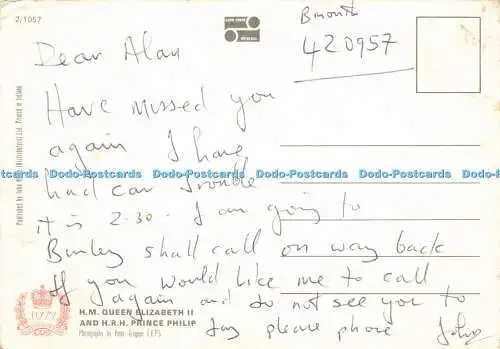 2/1057
B'mouth
420957
Dear Alan
Have missed you
again I have
had car trouble
it is 2-30. I am going to
Burley shall call on way back
If you would like me to call
again and do not see you to
day please phone John
Dodo-Postcards Dodo-Postcards Dodo-Postcards Dodo-Postcards
Published by John (Distributors) Ltd., Printed in Ireland
1977
H.M. QUEEN ELIZABETH II
AND H.R.H. PRINCE PHILIP
Photography by Peter Grugeon I.E.P.S.